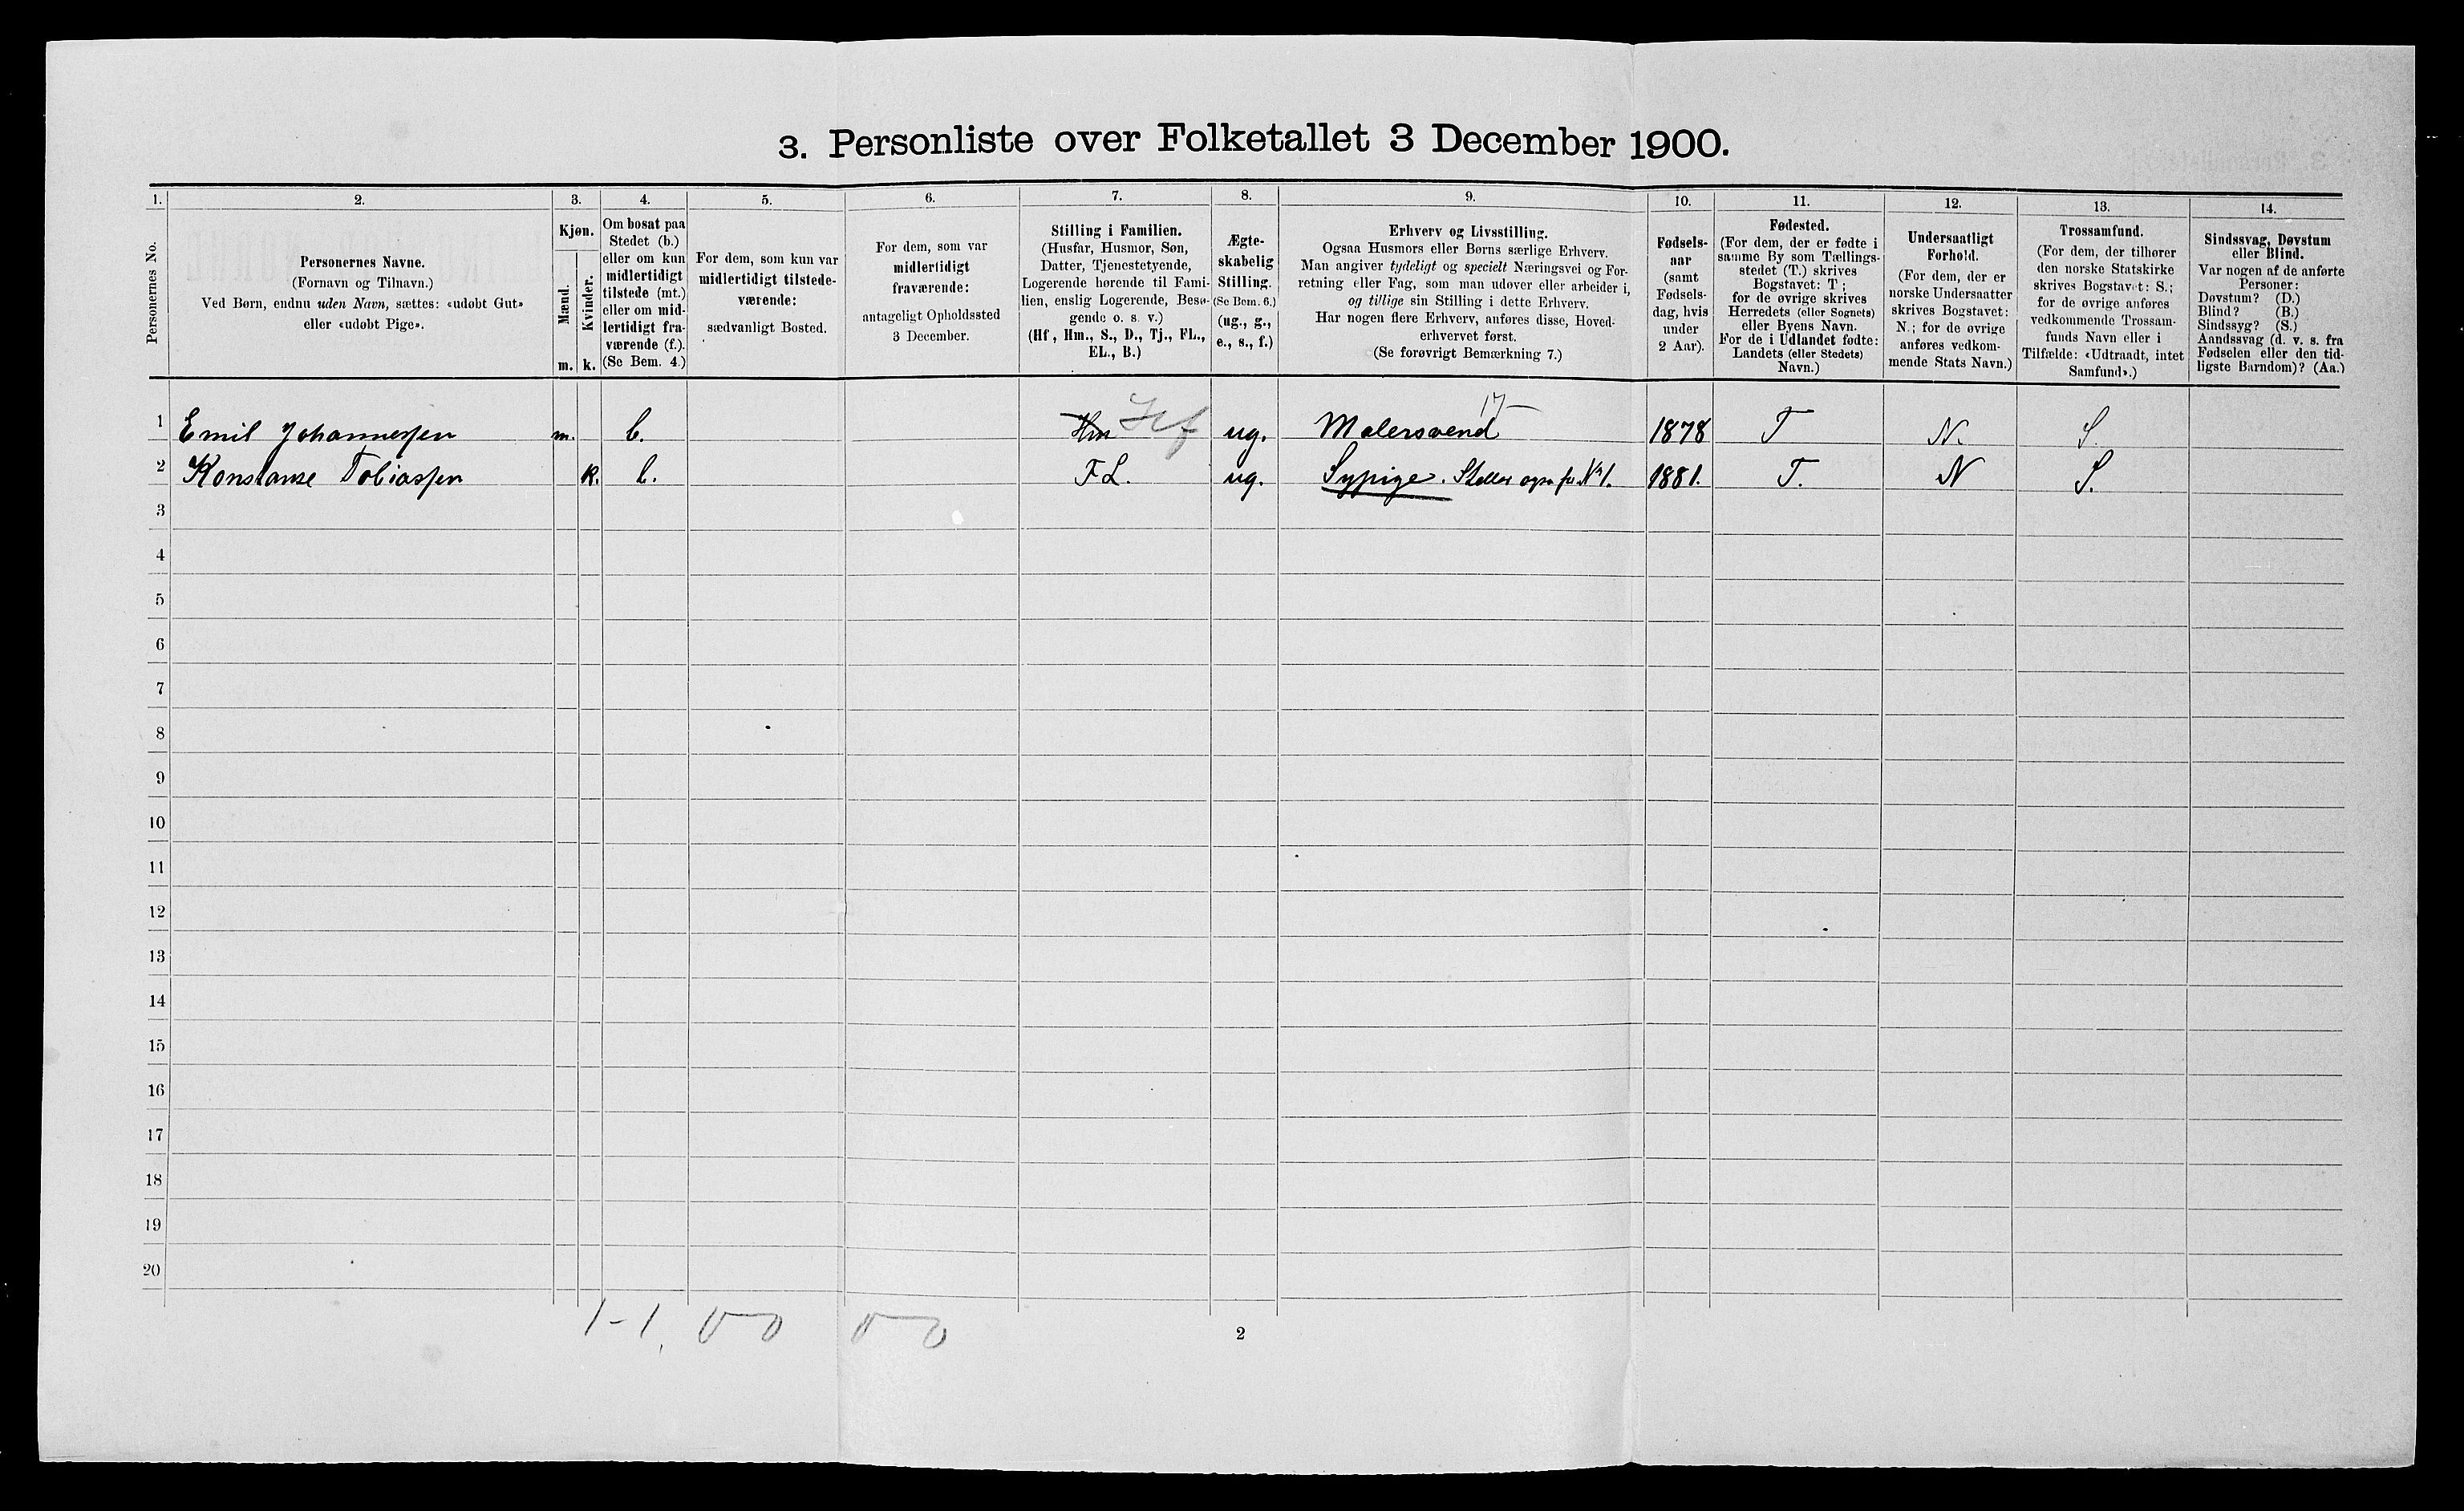 3. Personliste over Folketallet 3 December 1900.
1. 2. 3. 4. 5. 6. 7. 8. 9. 10. 11. 12. 13. 14.
Personernes No.
Personernes Navne.
(Fornavn og Tilnavn.)
Ved Børn, endnu uden Navn, sættes: «udøbt Gut»
eller «udøbt Pige».
Kjøn.
Mænd.
Kvinder.
m. k.
Om bosat paa
Stedet (b.)
eller om kun
midlertidigt
tilstede (mt.)
eller om mid-
lertidigt fra-
værende (f.).
(Se Bem. 4.)
For dem, som kun var
midlertidigt tilstede-
værende:
sædvanligt Bosted.
For dem, som var
midlertidigt
fraværende:
antageligt Opholdssted
3 December.
Stilling i Familien.
(Husfar, Husmor, Søn,
Datter, Tjenestetyende,
Logerende hørende til Fami-
lien, enslig Logerende, Besø-
gende o. s. v.)
(Hf., Hm., S., D., Tj., FL.,
EL., B.)
Ægte-
skabelig
Stilling.
(Se Bem. 6.)
(ug., g.,
e., s., f.)
Erhverv og Livsstilling.
Ogsaa Husmors eller Børns særlige Erhverv.
Man angiver tydeligt og specielt Næringsvei og For-
retning eller Fag, som man udøver eller arbeider i,
og tillige sin Stilling i dette Erhverv.
Har nogen flere Erhverv, anføres disse, Hoved-
erhvervet først.
(Se forøvrigt Bemærkning 7.)
Fødsels-
aar
(samt
Fødsels-
dag, hvis
under
2 Aar).
Fødested.
(For dem, der er fødte i
samme By som Tællings-
stedet (T.) skrives
Bogstavet: T;
for de øvrige skrives
Herredets (eller Sognets)
eller Byens Navn.
For de i Udlandet fødte:
Landets (eller Stedets)
Navn.)
Undersaatligt
Forhold.
(For dem, der er
norske Undersaatter
skrives Bogstavet:
N.; for de øvrige
anføres vedkom-
mende Stats Navn.)
Trossamfund.
(For dem, der tilhører
den norske Statskirke
skrives Bogstavet: S.;
for de øvrige anføres
vedkommende Trossam-
funds Navn eller i
Tilfælde: «Udtraadt, intet
Samfund».)
Sindssvag, Døvstum
eller Blind.
Var nogen af de anførte
Personer:
Døvstum? (D.)
Blind? (B.)
Sindssyg? (S.)
Aandssvag (d. v. s. fra
Fødselen eller den tid-
ligste Barndom)? (Aa.)
17
1 Emil Johannessen m. b. Hm Hf ug. Malersvend 1878 T N. S.
2 Konstanse Tobiassen k. b. FL. ug. Sypige. Steller for No 1. 1881. T. N S.
3
4
5
6
7
8
9
10
11
12
13
14
15
16
17
18
19
20
1-1. 0-0 0-0
2